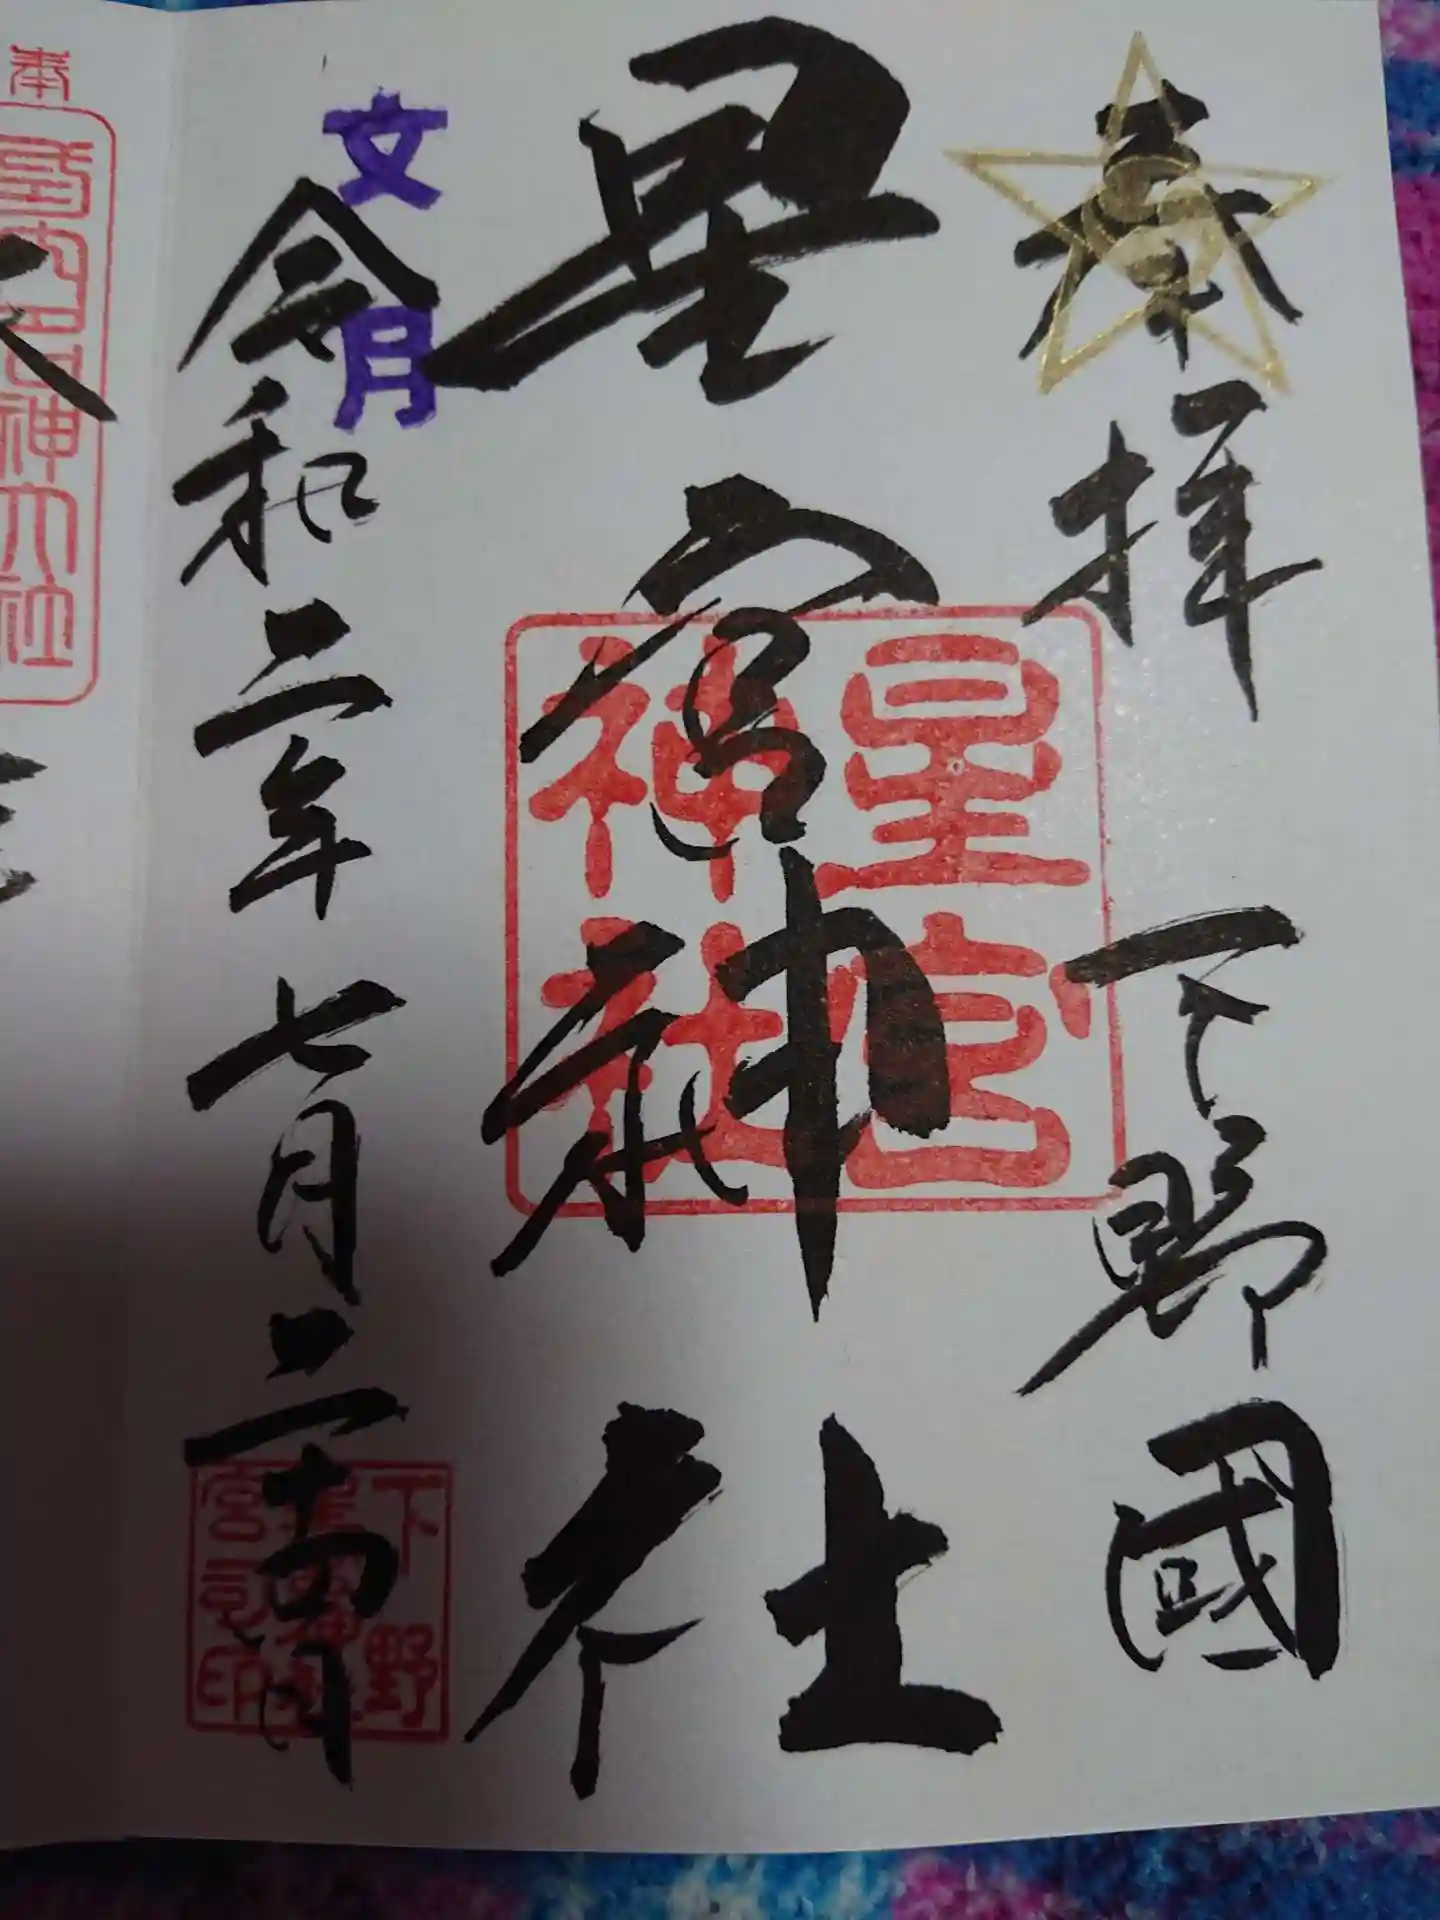 奉拝
下野國
星宮神社
星宮
神社
文月
令和二年七月二十四日
下野
宮司印
奉
神